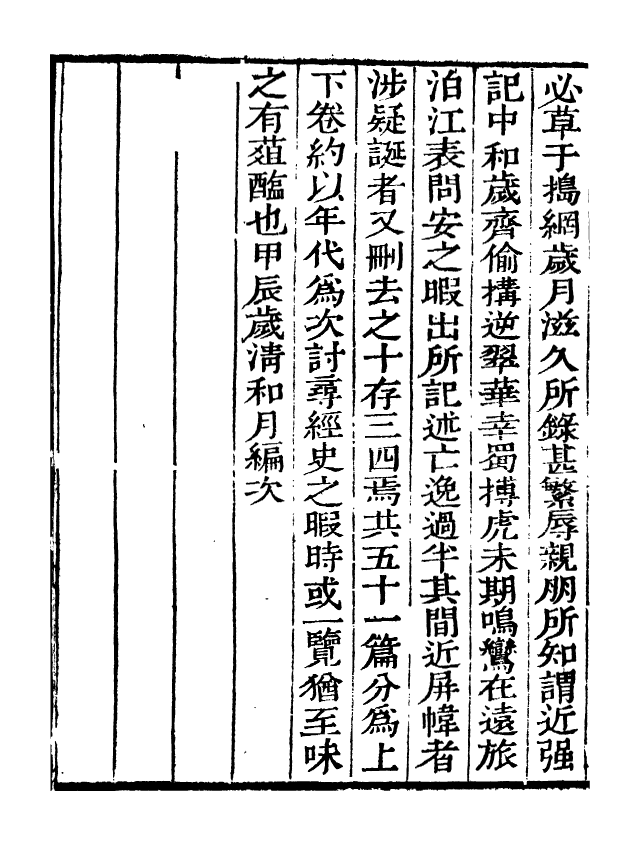 必草于搗網歲月滋久所錄甚繁辱親朋所知謂近强
記中和歲齊偷搆逆翠華幸蜀搏虎未期鳴鸞在遠旅
泊江表問安之暇出所記述亡逸過半其間近屏幃者
涉疑誕者又刪去之十存三四焉共五十一篇分為上
下卷約以年代為次討尋經史之暇時或一覽猶至味
之有葅醢也甲辰歲清和月編次